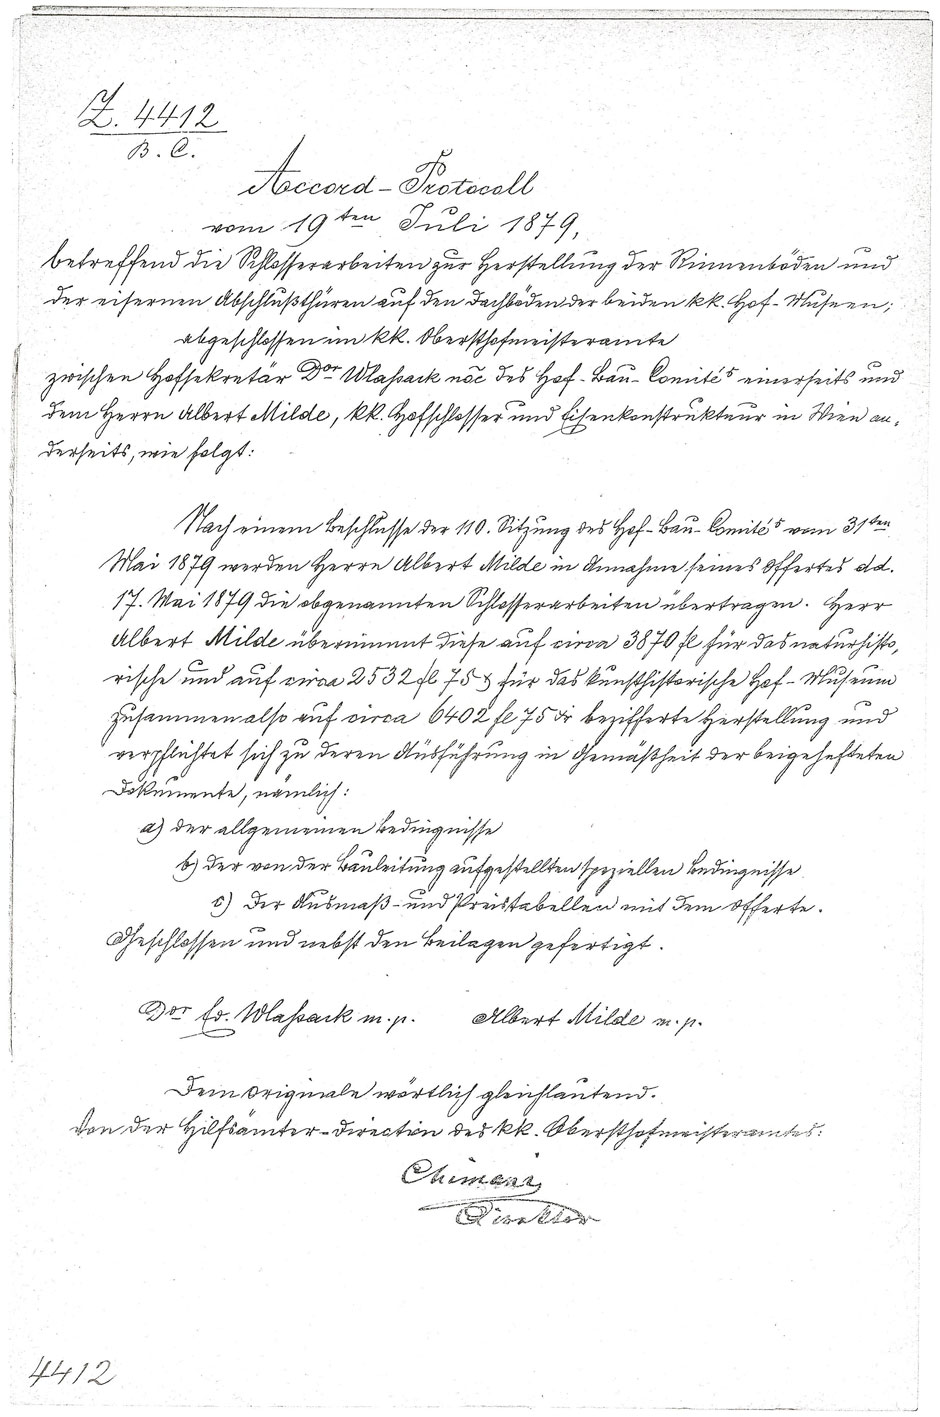 Z. 4412
B. C.
Accord-Protocoll
vom 19ten Juli 1879,
betreffend die Schlosserarbeiten zur Herstellung der Rinnenböden und
der eisernen Abschlußthüren auf den Dachböden der beiden kk. Hof-Museen;
abgeschlossen im kk. Obersthofmeisteramte
zwischen Hofsekretär Dor Wlassack noe des Hof-Bau-Comité's einerseits und
dem Herrn Albert Milde, kk. Hofschlosser und Eisenkonstrukteur in Wien an-
derseits, wie folgt:
Nach einem Beschlusse der 110. Sitzung des Hof-Bau-Comité's vom 31ten
Mai 1879 werden Herrn Albert Milde in Annahme seines Offertes dd.
17. Mai 1879 die obgenannten Schlosserarbeiten übertragen. Herr
Albert Milde übernimmt diese auf circa 3870 fl für das naturhisto-
rische und auf circa 2532 fl 75 x für das kunsthistorische Hof-Museum
zusammen also auf circa 6402 fl 75 xr bezifferte Herstellung und
verpflichtet sich zu deren Ausführung in Gemäßheit der beigehefteten
Dokumente, nämlich:
a) der allgemeinen Bedingnisse
b) der von der Bauleitung aufgestellten speziellen Bedingnisse
c) der Ausmaß- und Preistabellen mit dem Offerte.
Geschlossen und nebst den Beilagen gefertigt.
Dor Ed. Wlassack m. p. Albert Milde m. p.
Dem Originale wörtlich gleichlautend.
Von der Hilfsämter-Direction des kk. Obersthofmeisteramtes:
Chimani
Direktor
4412